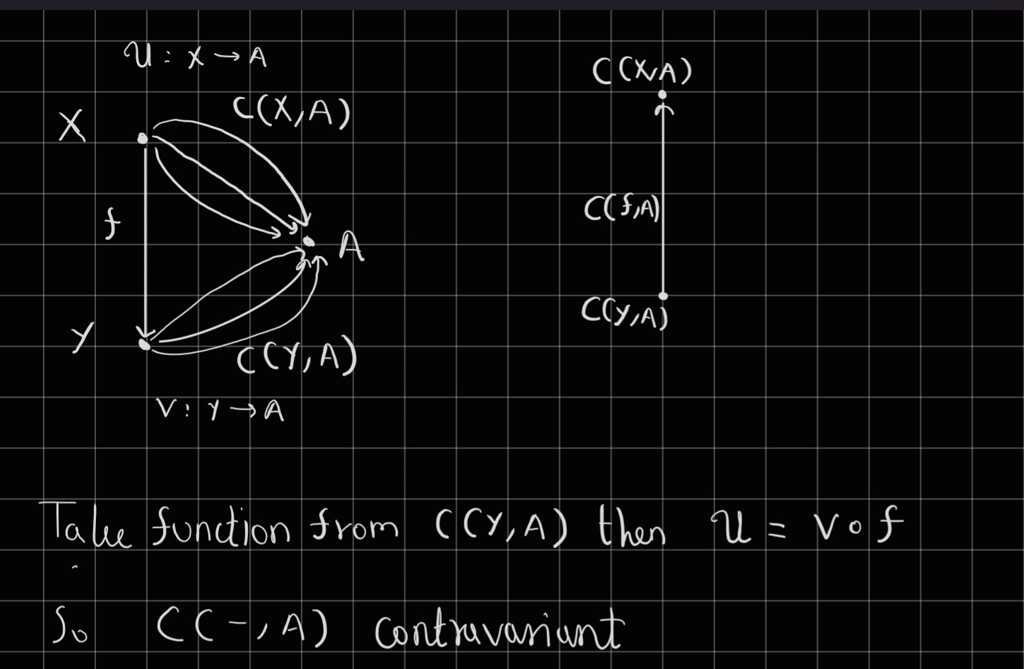 U : X → A
C(X,A)
X
C(X,A)
f
C(f,A)
A
Y
C(Y,A)
C(Y,A)
V : Y → A
Take function from C(Y,A) then U = V ∘ f
So C(-,A) contravariant